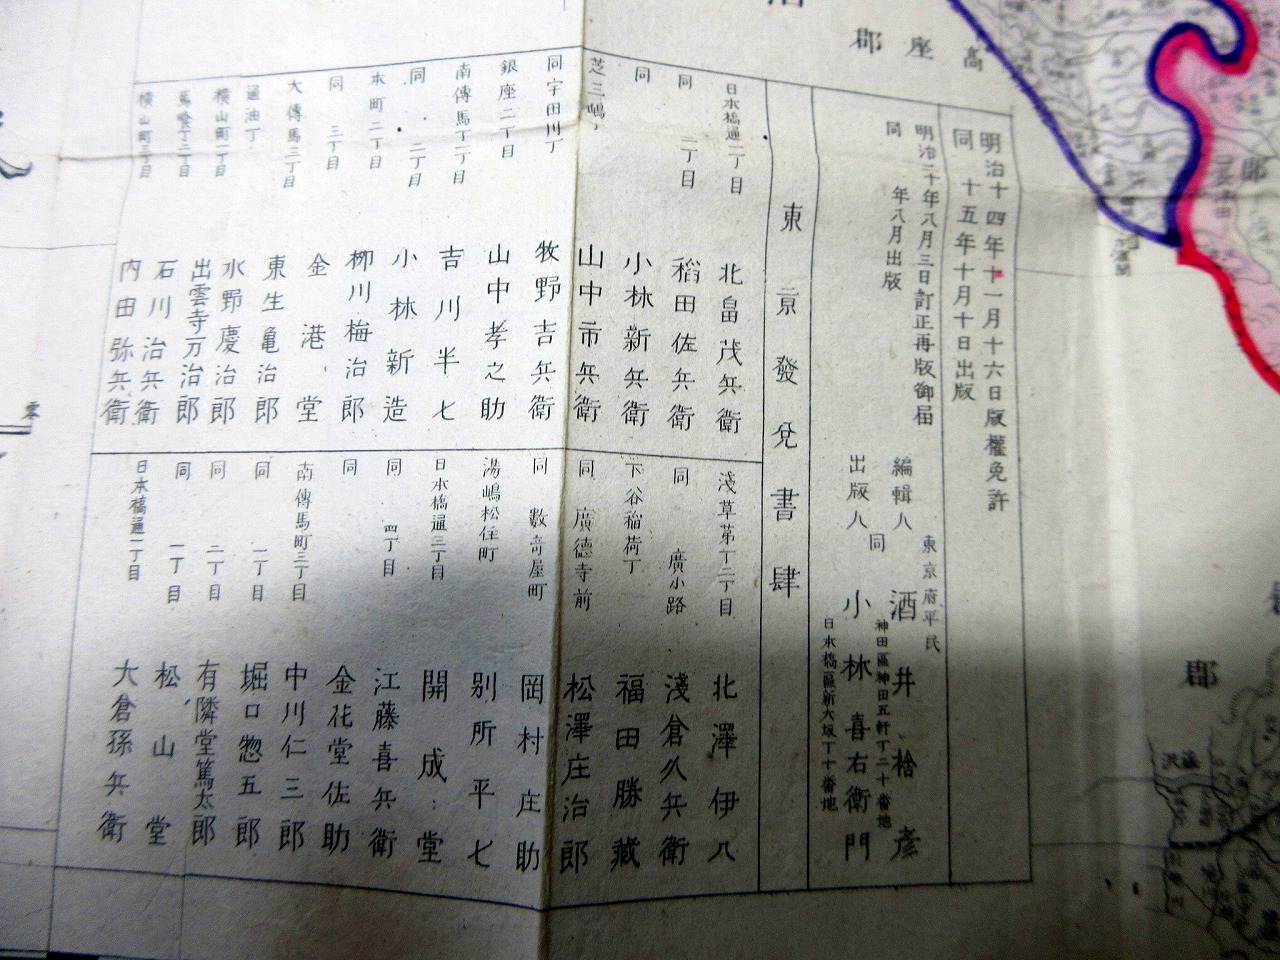 高座郡
明治十四年十一月十六日版權免許
同 十五年十月十日出版
明治二十年八月三日訂正再版御届
同 年八月出版
編輯人 東京府平民 酒井捨彦
神田區神田五軒丁二十番地
出版人 同 小林喜右衛門
日本橋區新大坂丁十番地
東京發兌書肆
日本橋通一丁目 北畠茂兵衛
同 二丁目 稲田佐兵衛
同 小林新兵衛
芝三嶋丁 山中市兵衛
同 宇田川丁 牧野吉兵衛
銀座二丁目 山中孝之助
南傳馬丁二丁目 吉川半七
同 二丁目 小林新造
本町二丁目 柳川梅治郎
同 三丁目 金港堂
大傳馬二丁目 東生亀治郎
通油丁 水野慶治郎
横山町一丁目 出雲寺万治郎
馬喰丁二丁目 石川治兵衛
横山町三丁目 内田弥兵衛
淺草茅丁二丁目 北澤伊八
同 廣小路 淺倉久兵衛
下谷稲荷丁 福田勝藏
同 廣德寺前 松澤庄治郎
同 數寄屋町 岡村庄助
湯嶋松住町 別所平七
日本橋通三丁目 開成堂
同 四丁目 江藤喜兵衛
同 金花堂佐助
南傳馬町三丁目 中川仁三郎
同 一丁目 堀口惣五郎
同 二丁目 有隣堂篤太郎
同 一丁目 松山堂
日本橋通一丁目 大倉孫兵衛
郡
郡
藤沢
零